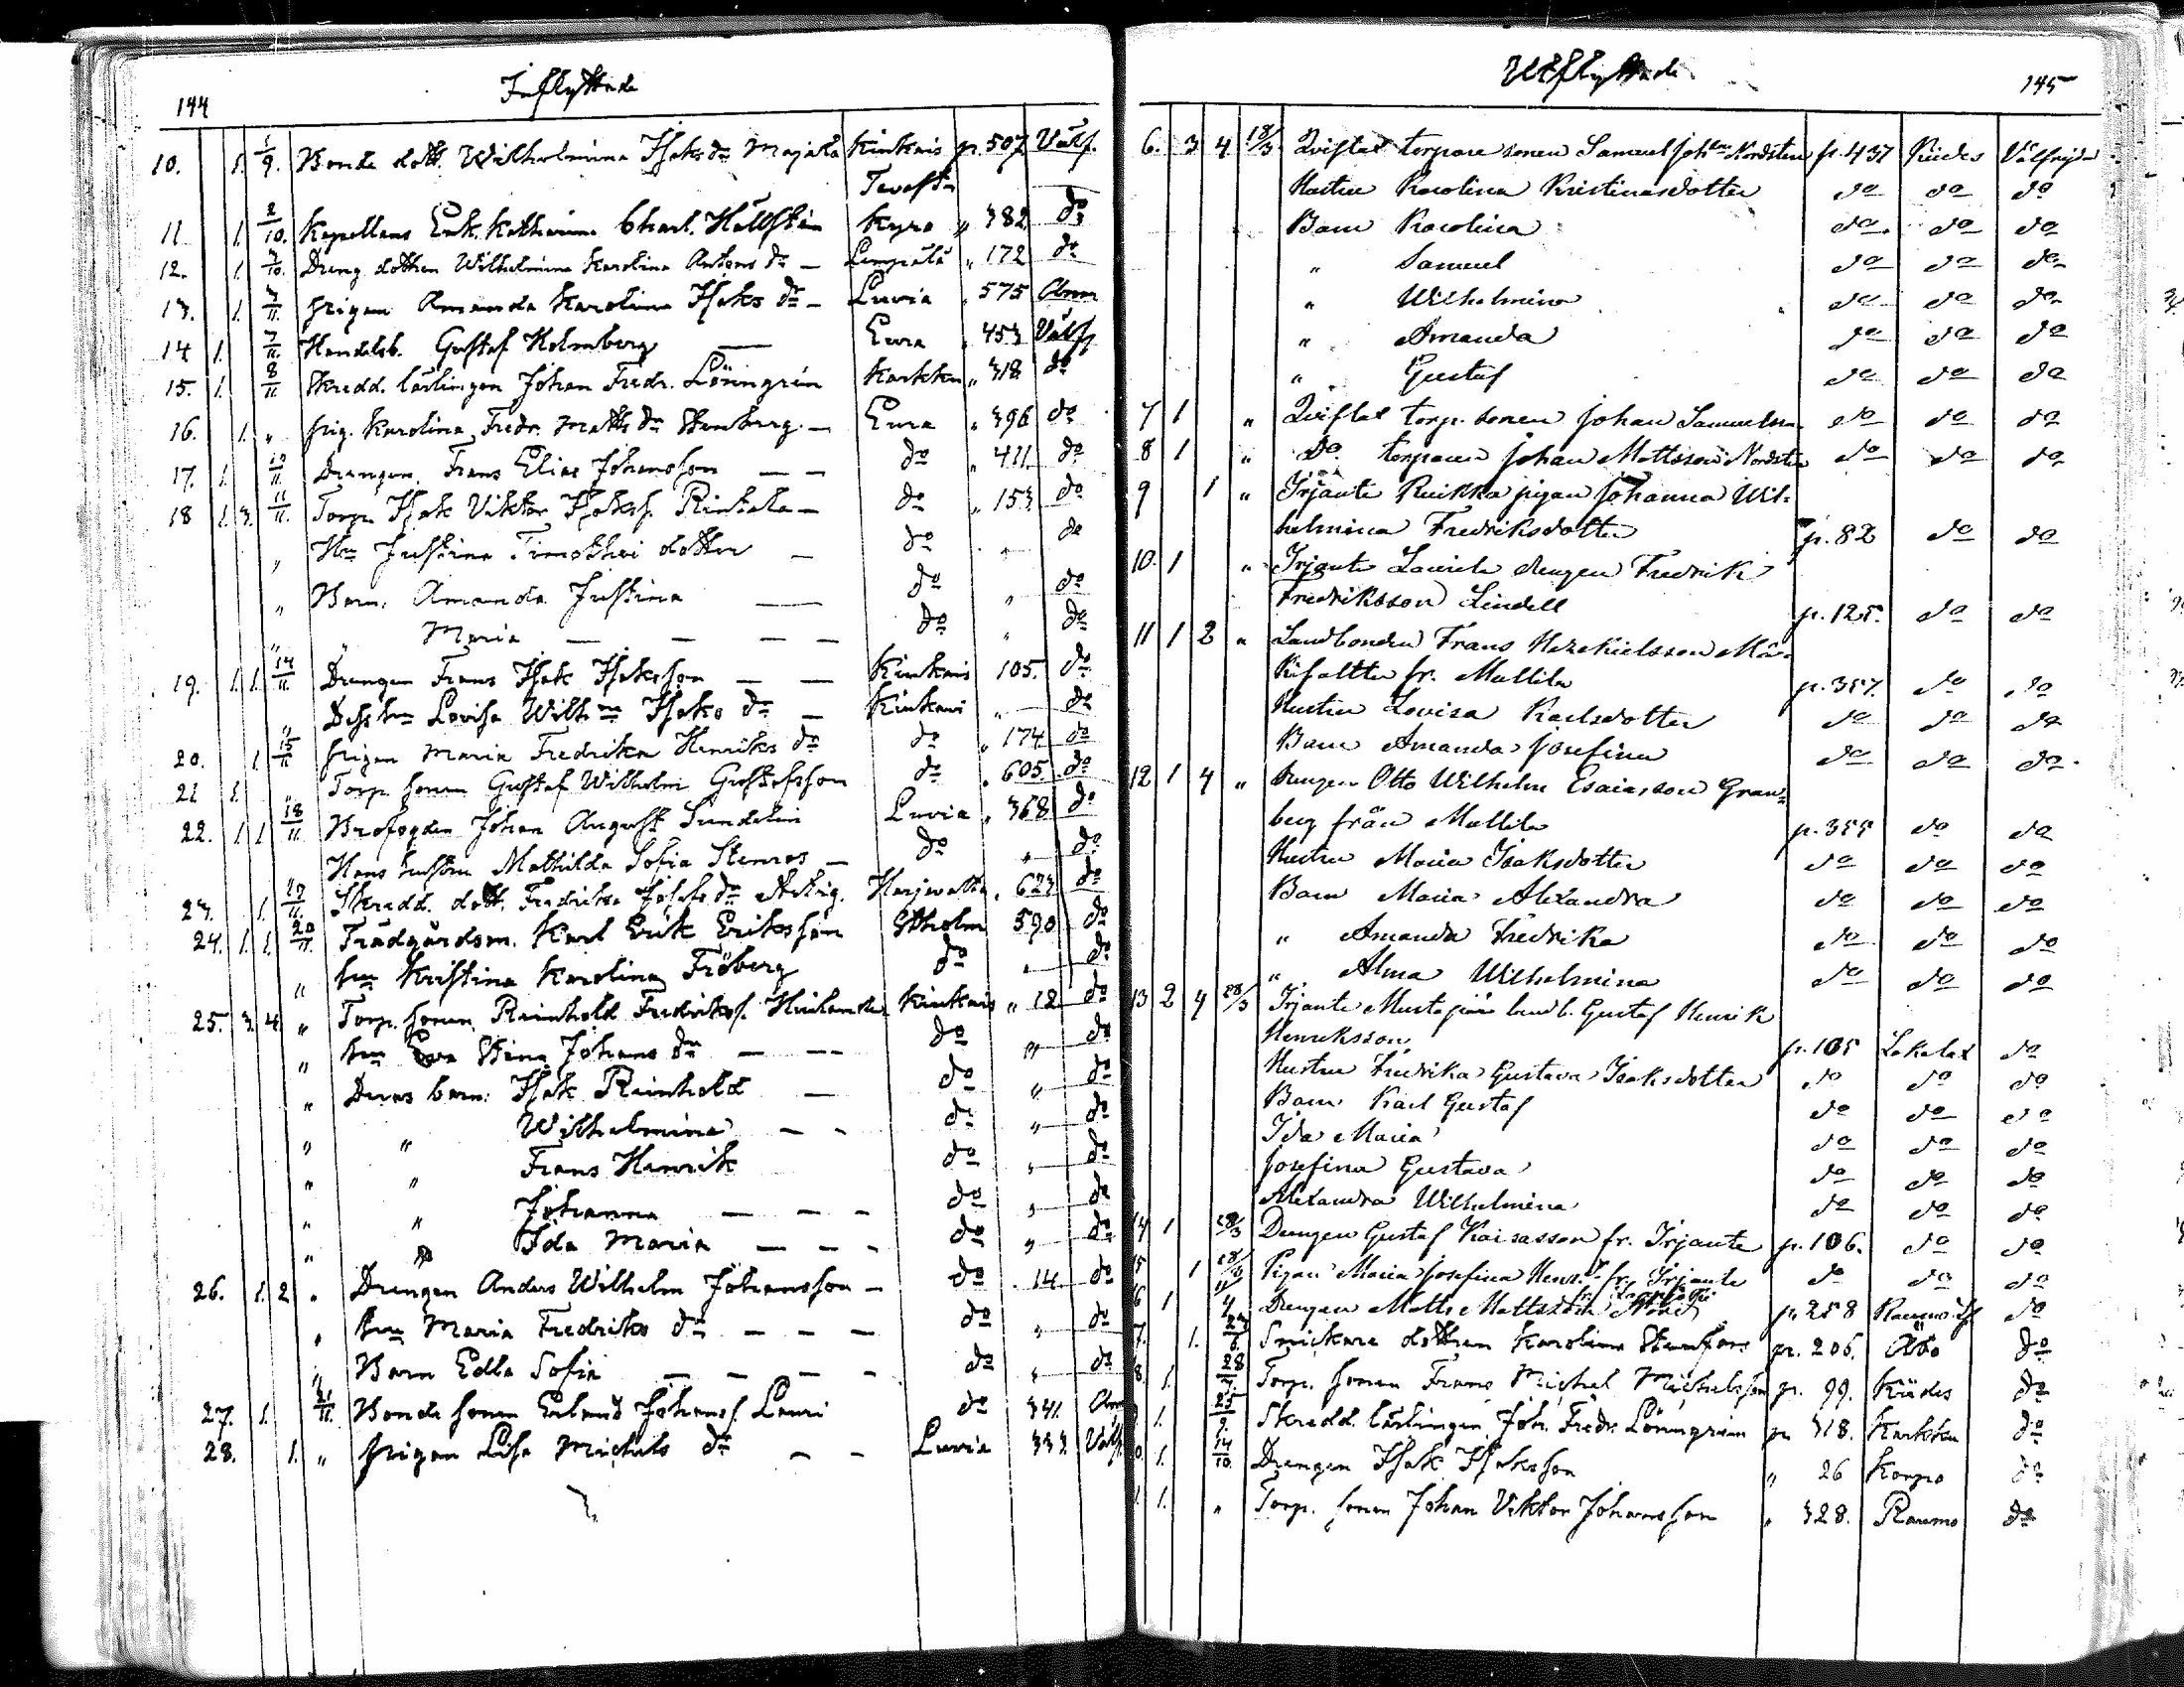 144 Inflyttade
10. 1. 1/9. Bonde dott. Wilhelmina Isaks dr Majala Kiukais p. 507 Välf.
Tavast-
11 1. 2/10. Kapellans Enk. Katharina Charl. Hällsten Kyro " 382 do
12. 1. 4/10. Dreng dottren Wilhelmina Karolina Antons dr — Lempälä " 172 do
13. 1. 3/11. pigan Amanda Karolina Isaks dr — Luvia " 575 Ann
14 1. 7/11. Handelsb. Gustaf Holmberg — Eura " 453 Välf
15. 1. 8/11. Skredd. lärlingen Johan Fredr. Lönngrén Karkku " 318 do
16. 1. " pig. Karolina Fredr. Matts dr Stenberg — Eura " 396 do
17. 1. 10/11. Drengen Frans Elias Johansson — — do " 411. do
18 1. 3. 11/11. Torp. Isak Viktor Isakss. Rintala — do " 153 do
" Hru Justina Timothei dotter — do " do
" Barn: Amanda Justina — do " do
" " Maria — — — — do " do
19. 1. 1. 14/11. Drengen Frans Isak Isaksson — — Kiukais 105. do
" Dess hru Lovisa Wilhna Isaks dr — Kiukais " do
20. 1. 15/11 pigan Maria Fredrika Henriks dr do " 174 do
21 1. " Torp. sonen Gustaf Wilhelm Gustafsson do " 605. do
22. 1. 1. 18/11. Brofogden Johan August Sundelin Luvia " 368 do
Hans hustru Mathilda Sofia Stenros — do " do
23. 1. 19/11. Skredd. dott. Fredrika Josefs. dr Harjavalta " 623 do
24. 1. 1. 20/11. Trädgårdsm. Karl Erik Eriksson Stholm 590 do
" hru Kristina Karolina Fröberg do " do
25. 3. 4. " Torp. sonen Reinhold Fredrikss. Kiukais " 12 do
" hru Eva Stina Johans dr — — do " do
" Deras barn: Isak Reinhold — do " do
" " Wilhelmina — — do " do
" " Frans Henrik do " do
" " Johanna — — — do " do
" " Ida Maria — — — do " do
26. 1. 2 " Drengen Anders Wilhelm Johansson — do 14 do
" hru Maria Fredriks dr — — — do " do
" Barn Edla Sofia — — — — do " do
27. 1. 21/11. Bonde sonen Erland Johanss. Lauri do 341. Ann
28. 1. " pigan Lisa Michels dr — — Luvia 333. Välf.
Utflyttade 145
6. 3 4 18/3 Qvistat torpare sonen Samuel Johsn Nordsten p. 437 Kiides Välfrejd
Hustru Karolina Kristinasdotter do do do
Barn Karolina do do do
" Samuel do do do
" Wilhelmina do do do
" Amanda do do do
" Gustaf do do do
7 1 " Qvistat torp. sonen Johan Samuelsson do do do
8 1 " Do torparen Johan Mattsson Nordsten do do do
9 1 " Irjante Ruikka pigan Johanna Wil-
helmina Fredriksdotter p. 82 do do
10. 1 " Irjante Laurila drengen Fredrik
Fredriksson Lindell p. 125. do do
11 1 2 " Landbonden Frans Hezekielsson Mä-
kisaltta fr. Mullila p. 357. do do
Hustru Lovisa Karlsdotter do do do
Barn Amanda Josefina do do do
12 1 4 " Drengen Otto Wilhelm Esaiasson Gran-
berg från Mullila p. 355 do do
Hustru Maria Isaksdotter do do do
Barn Maria Alexandra do do do
" Amanda Fredrika do do do
" Alma Wilhelmina do do do
13 2 4 28/3 Irjante landb. Gustaf Henrik
Henriksson p. 105 Lokalax do
Hustru Fredrika Gustava Isaksdotter do do do
Barn Karl Gustaf do do do
Ida Maria do do do
Josefina Gustava do do do
Alexandra Wilhelmina do do do
14 1 28/3 Drengen Gustaf Kaisasson fr. Irjante p. 106. do do
15 1 28/3 Pigan Maria Josefina Henr. fr. Irjante do do do
6 1 Drengen Matts Mattsson p. 258 do
7. 1. Snickare dottren Karolina Stenfors p. 206. Åbo do
8. 1. 28/7 Torp. sonen Frans Michel Michelsson p. 99. Kiides do
9 1. 25/9. Skredd. lärlingen Joh. Fredr. Lönngrén p. 318. Karkku do
0. 1. 14/10. Drengen Isak Isaksson " 26 Korpo do
1. 1. " Torp. sonen Johan Viktor Johansson " 328. Raumo do